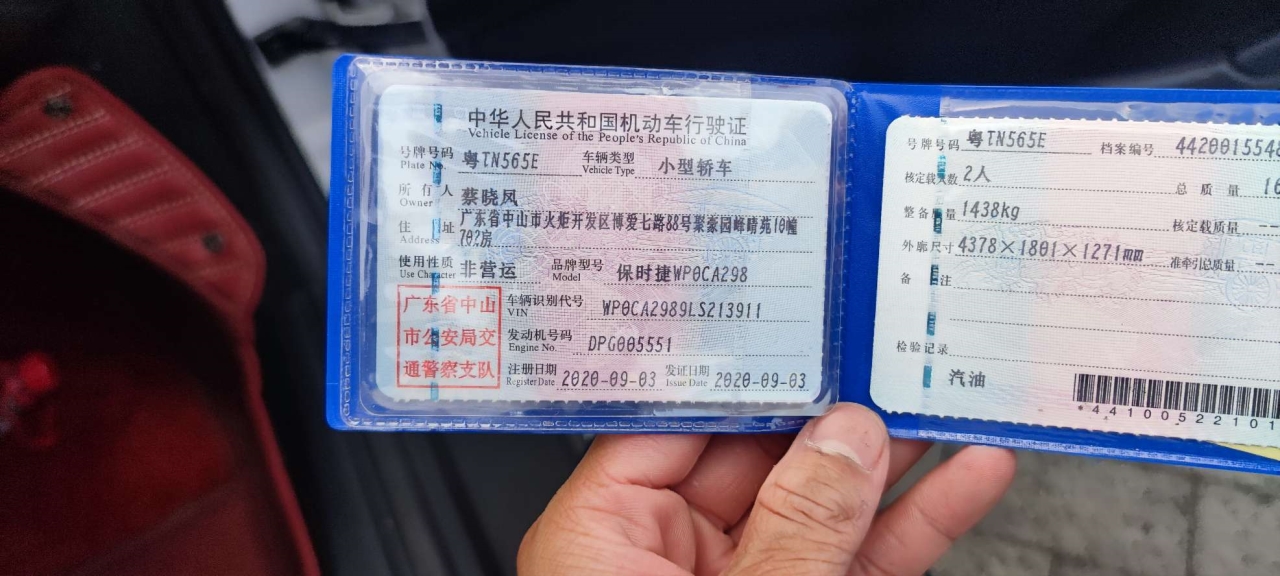 中华人民共和国机动车行驶证
Vehicle License of the People's Republic of China
号牌号码 粤TN565E 车辆类型 小型轿车
Plate No. Vehicle Type
所有人 蔡晓凤
Owner
住址 广东省中山市火炬开发区博爱七路88号聚豪园峰晴苑10幢
Address 702房
使用性质 非营运 品牌型号 保时捷WP0CA298
Use Character Model
广东省中山
市公安局交
通警察支队
车辆识别代号 WP0CA2989LS213911
VIN
发动机号码 DPG005551
Engine No.
注册日期 2020-09-03 发证日期 2020-09-03
Register Date Issue Date
号牌号码 粤TN565E 档案编号 4420015548
核定载人数 2人 总质量 16
整备质量 1438kg 核定载质量 --
外廓尺寸 4378×1801×1271mm 准牵引总质量 --
备注
检验记录
汽油
*44100522101